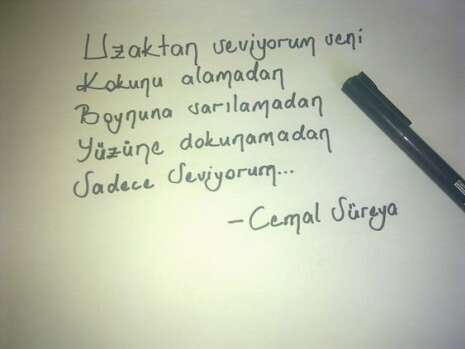 Uzaktan seviyorum seni
Kokunu alamadan
Boynuna sarılamadan
Yüzüne dokunamadan
Sadece Seviyorum...
-Cemal Süreya